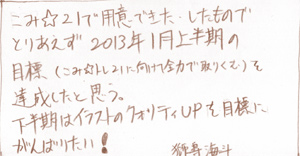 こみ☆21で用意できた・したもので
とりあえず2013年1月上半期の
目標（こみ☆トレ21に向けて全力で取りくむ）を
達成したと思う。
下半期はイラストのクオリティUPを目標に
がんばりたい！
海斗